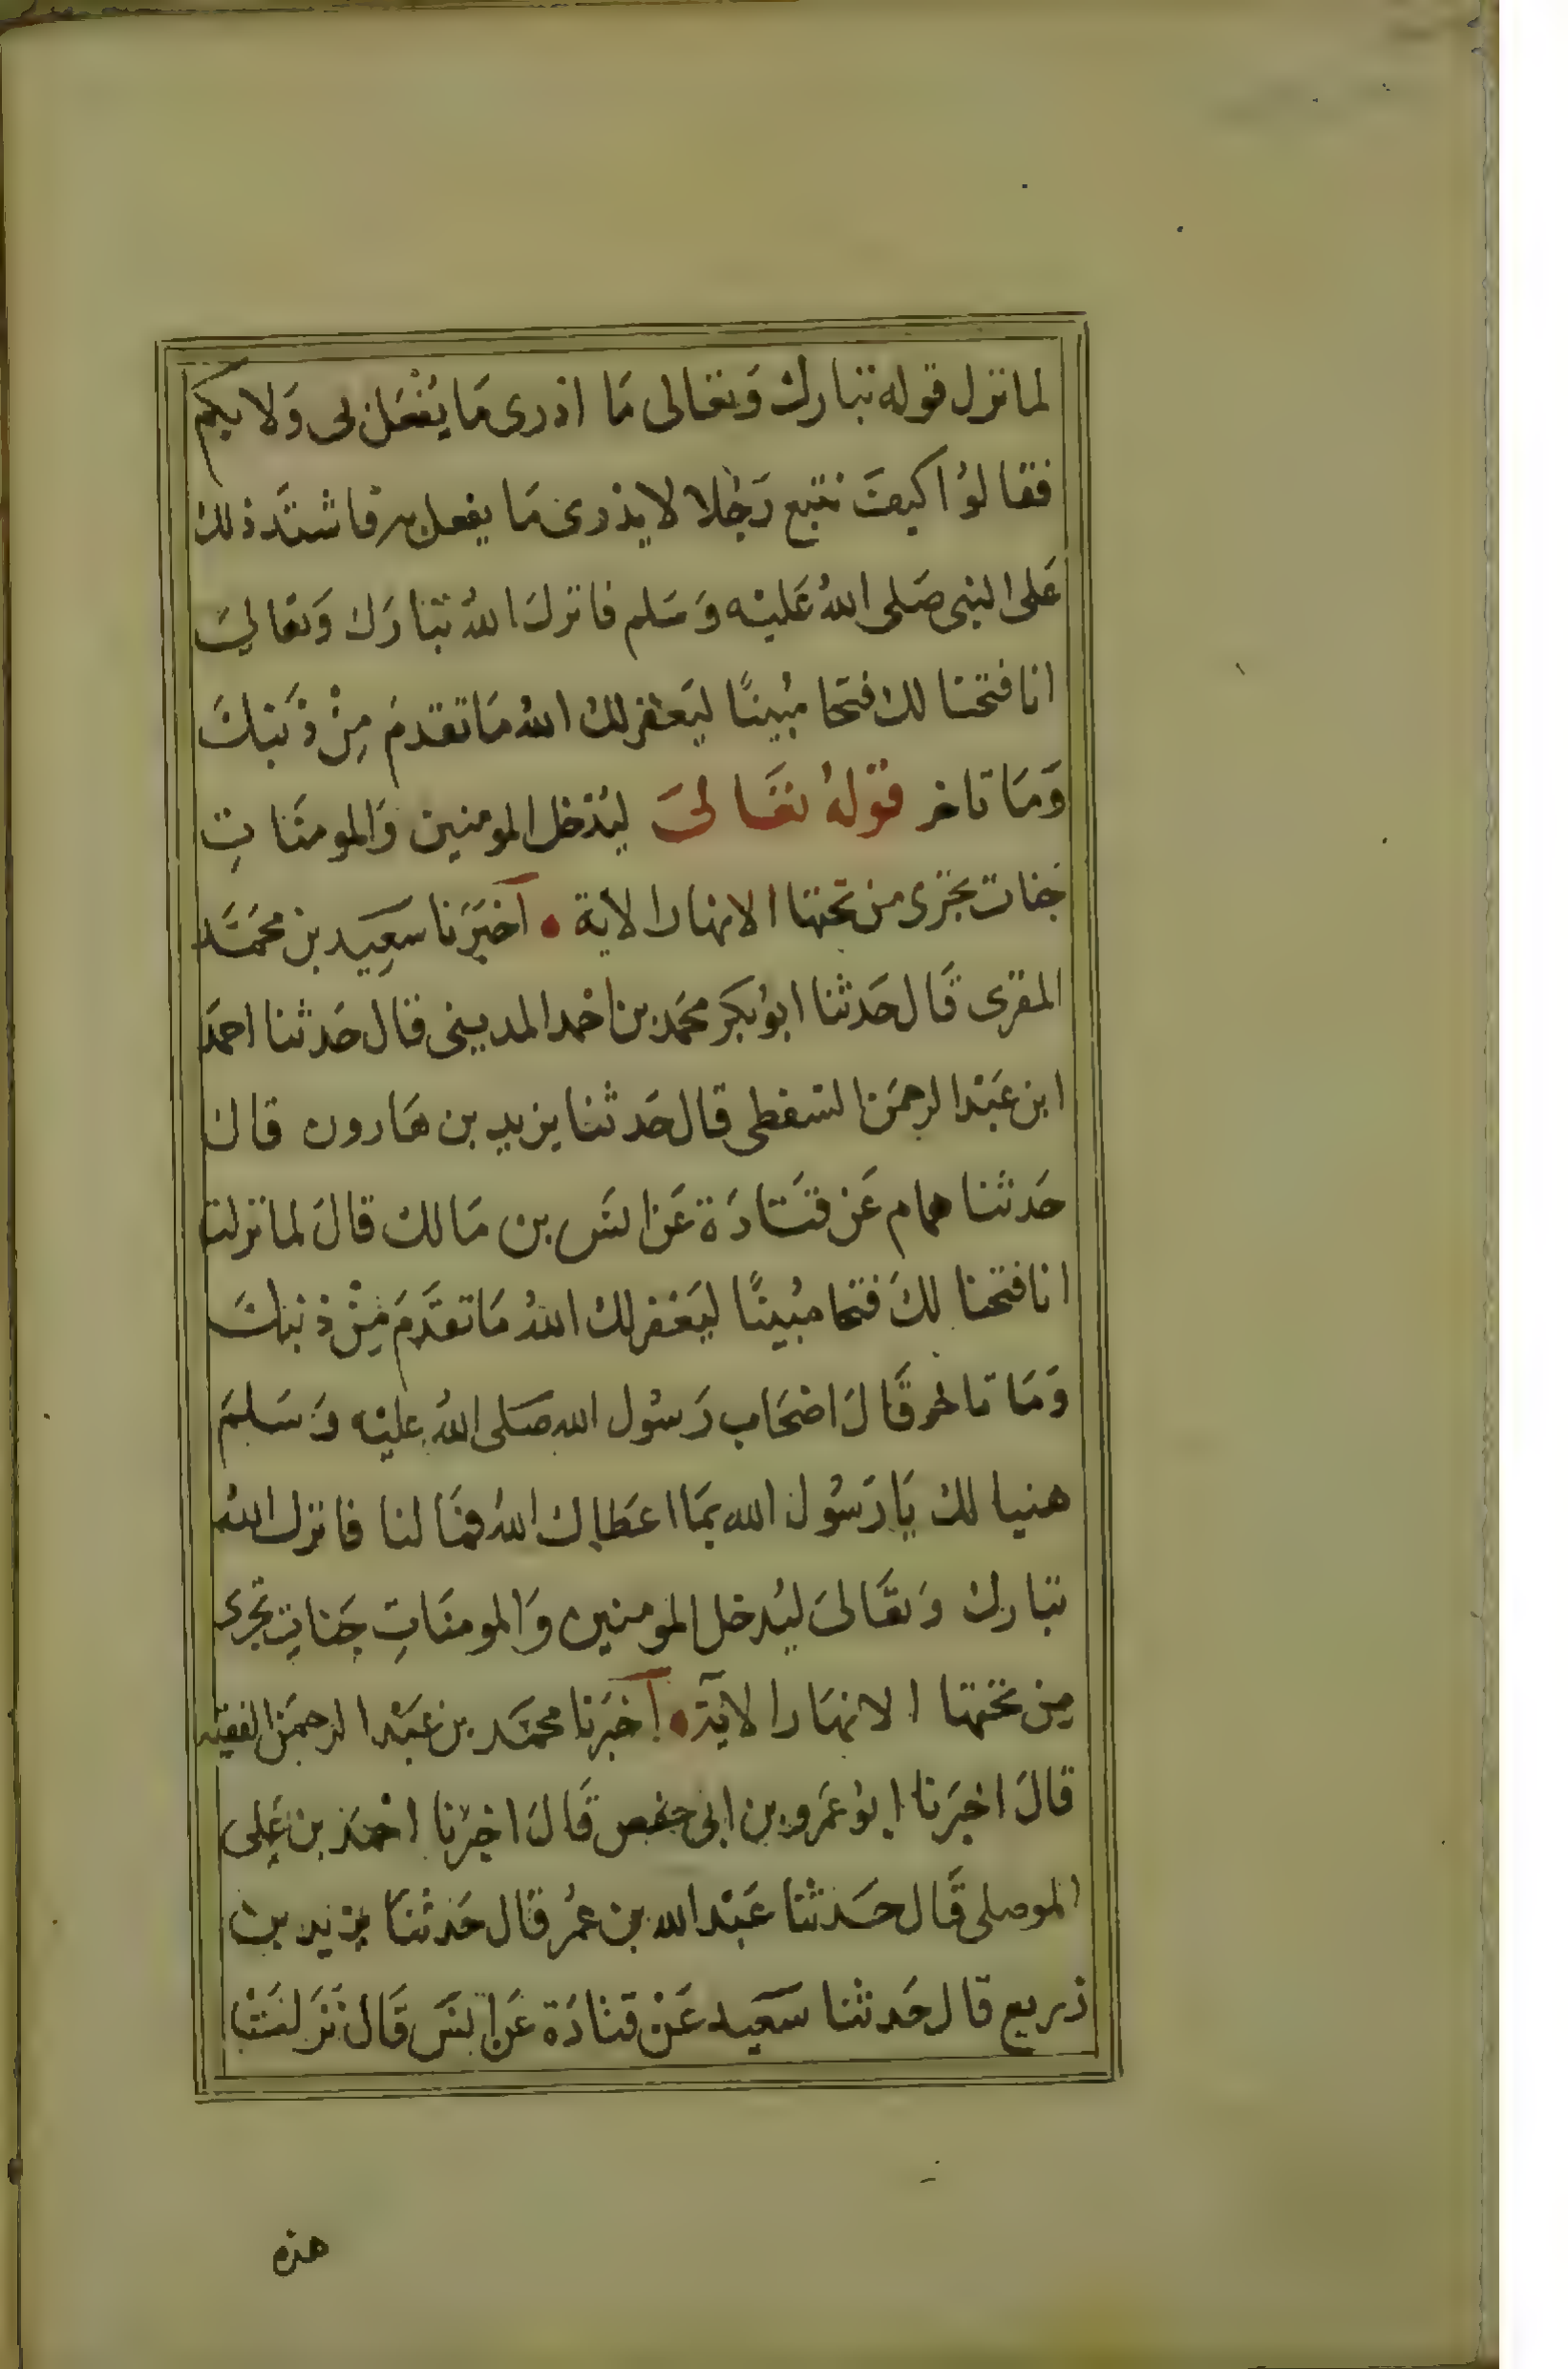 لما نزل قوله تبارك وتعالى ما ادرى ما يفعل بى ولا بكم
فقالوا كيف نتبع رجلا لا يدرى ما يفعل به فاشتد ذلك
على النبى صلى الله عليه وسلم فانزل الله تبارك وتعالى
انا فتحنا لك فتحا مبينا ليغفر لك الله ما تقدم من ذنبك
وما تاخر قوله تعالى ليدخل المومنين والمومنات
جنات تجرى من تحتها الانهار الاية • اخبرنا سعيد بن محمد
المقرى قال حدثنا ابو بكر محمد بن احمد المدينى قال حدثنا احمد
ابن عبد الرحمن السقطى قال حدثنا يزيد بن هارون قال
حدثنا همام عن قتادة عن انس بن مالك قال لما نزلت
انا فتحنا لك فتحا مبينا ليغفر لك الله ما تقدم من ذنبك
وما تاخر قال اصحاب رسول الله صلى الله عليه وسلم
هنيا لك يا رسول الله بما اعطاك الله فما لنا فانزل الله
تبارك وتعالى ليدخل المومنين والمومنات جنات تجرى
من تحتها الانهار الاية • اخبرنا محمد بن عبد الرحمن الفقيه
قال اخبرنا ابو عمرو بن ابى حفص قال اخبرنا احمد بن على
الموصلى قال حدثنا عبد الله بن عمر قال حدثنا يزيد بن
زريع قال حدثنا سعيد عن قتادة عن انس قال نزلت
هذه